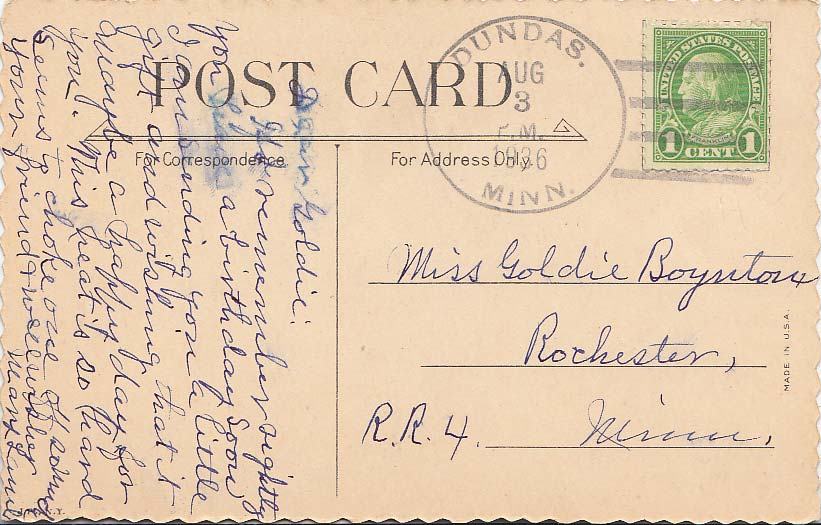 POST CARD
For Correspondence
For Address Only.
DUNDAS.
AUG
3
P.M.
1936
MINN.
UNITED STATES POSTAGE
FRANKLIN
1 CENT 1
Dear Goldie:
If I remember rightly
you have a birthday soon
I am sending you a little
gift and wishing that it
may be a happy day for
you. This heat is so hard
seems to choke one
Your friend & well wisher
Mary
Miss Goldie Boynton
Rochester,
R.R. 4. Minn.
MADE IN U.S.A.